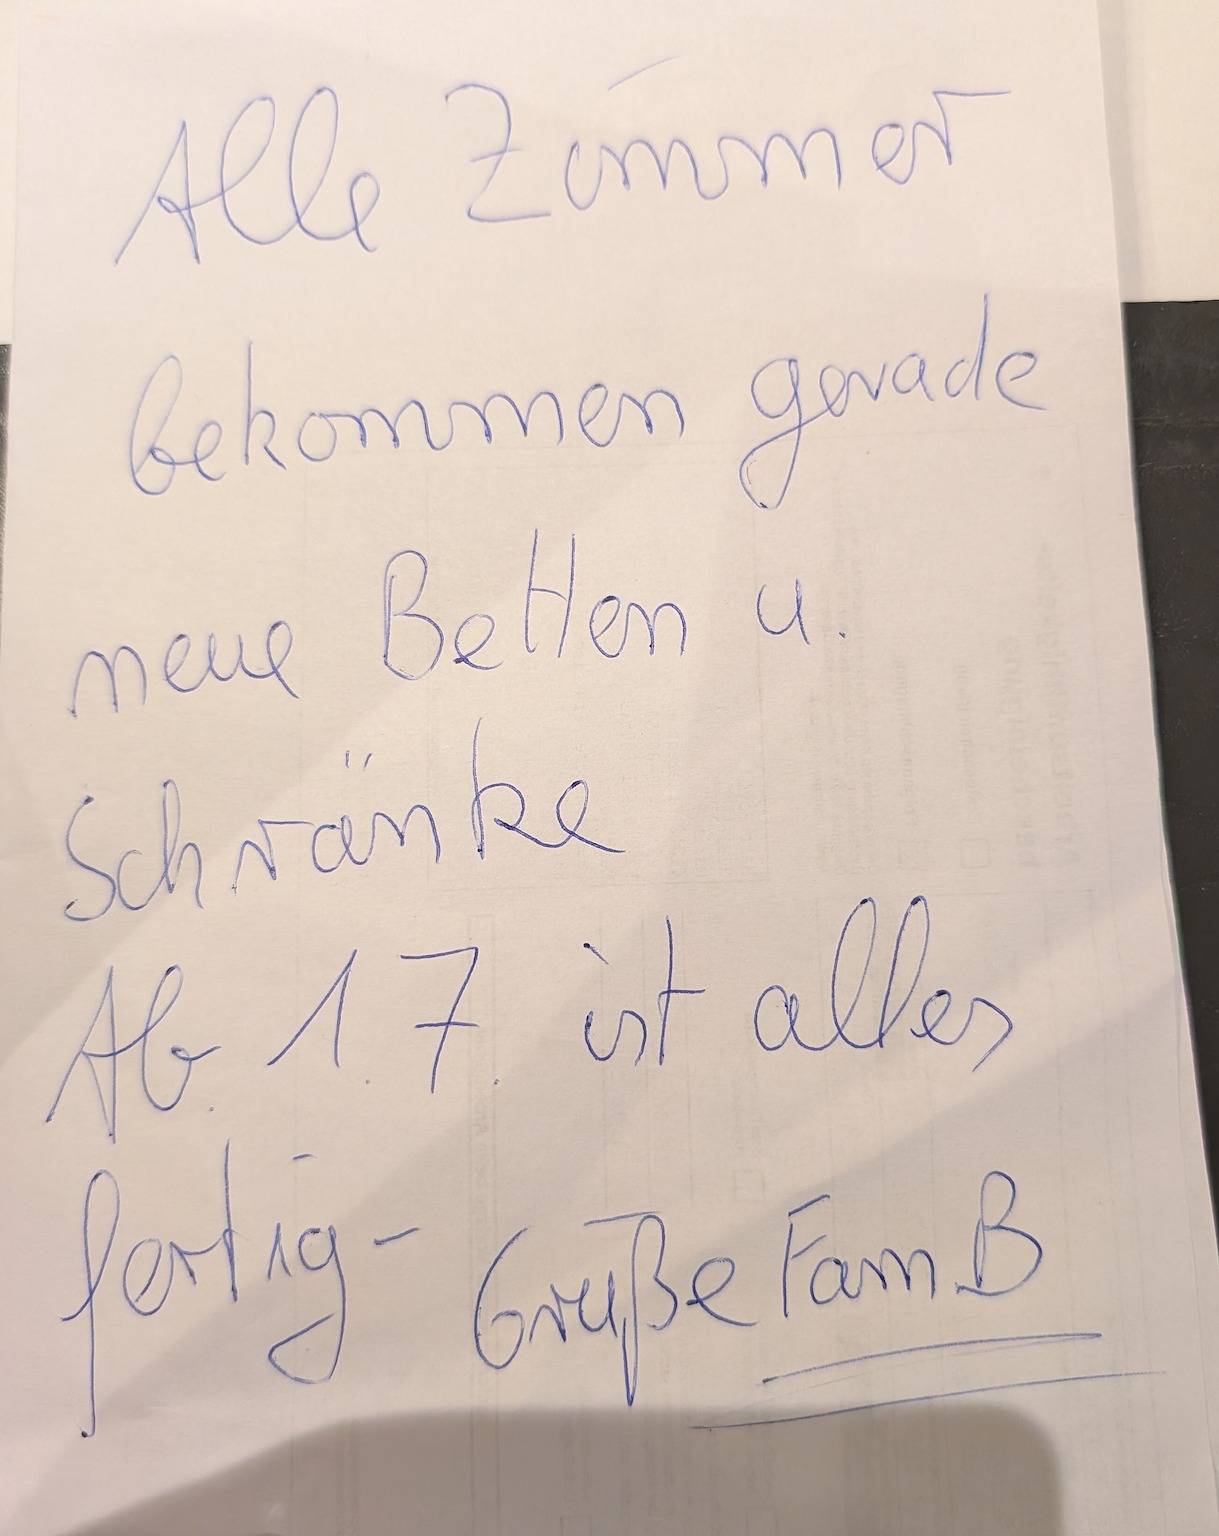 Alle Zimmer
bekommen gerade
neue Betten u.
Schränke
Ab. 1.7. ist alles
fertig - Grüße Fam. B